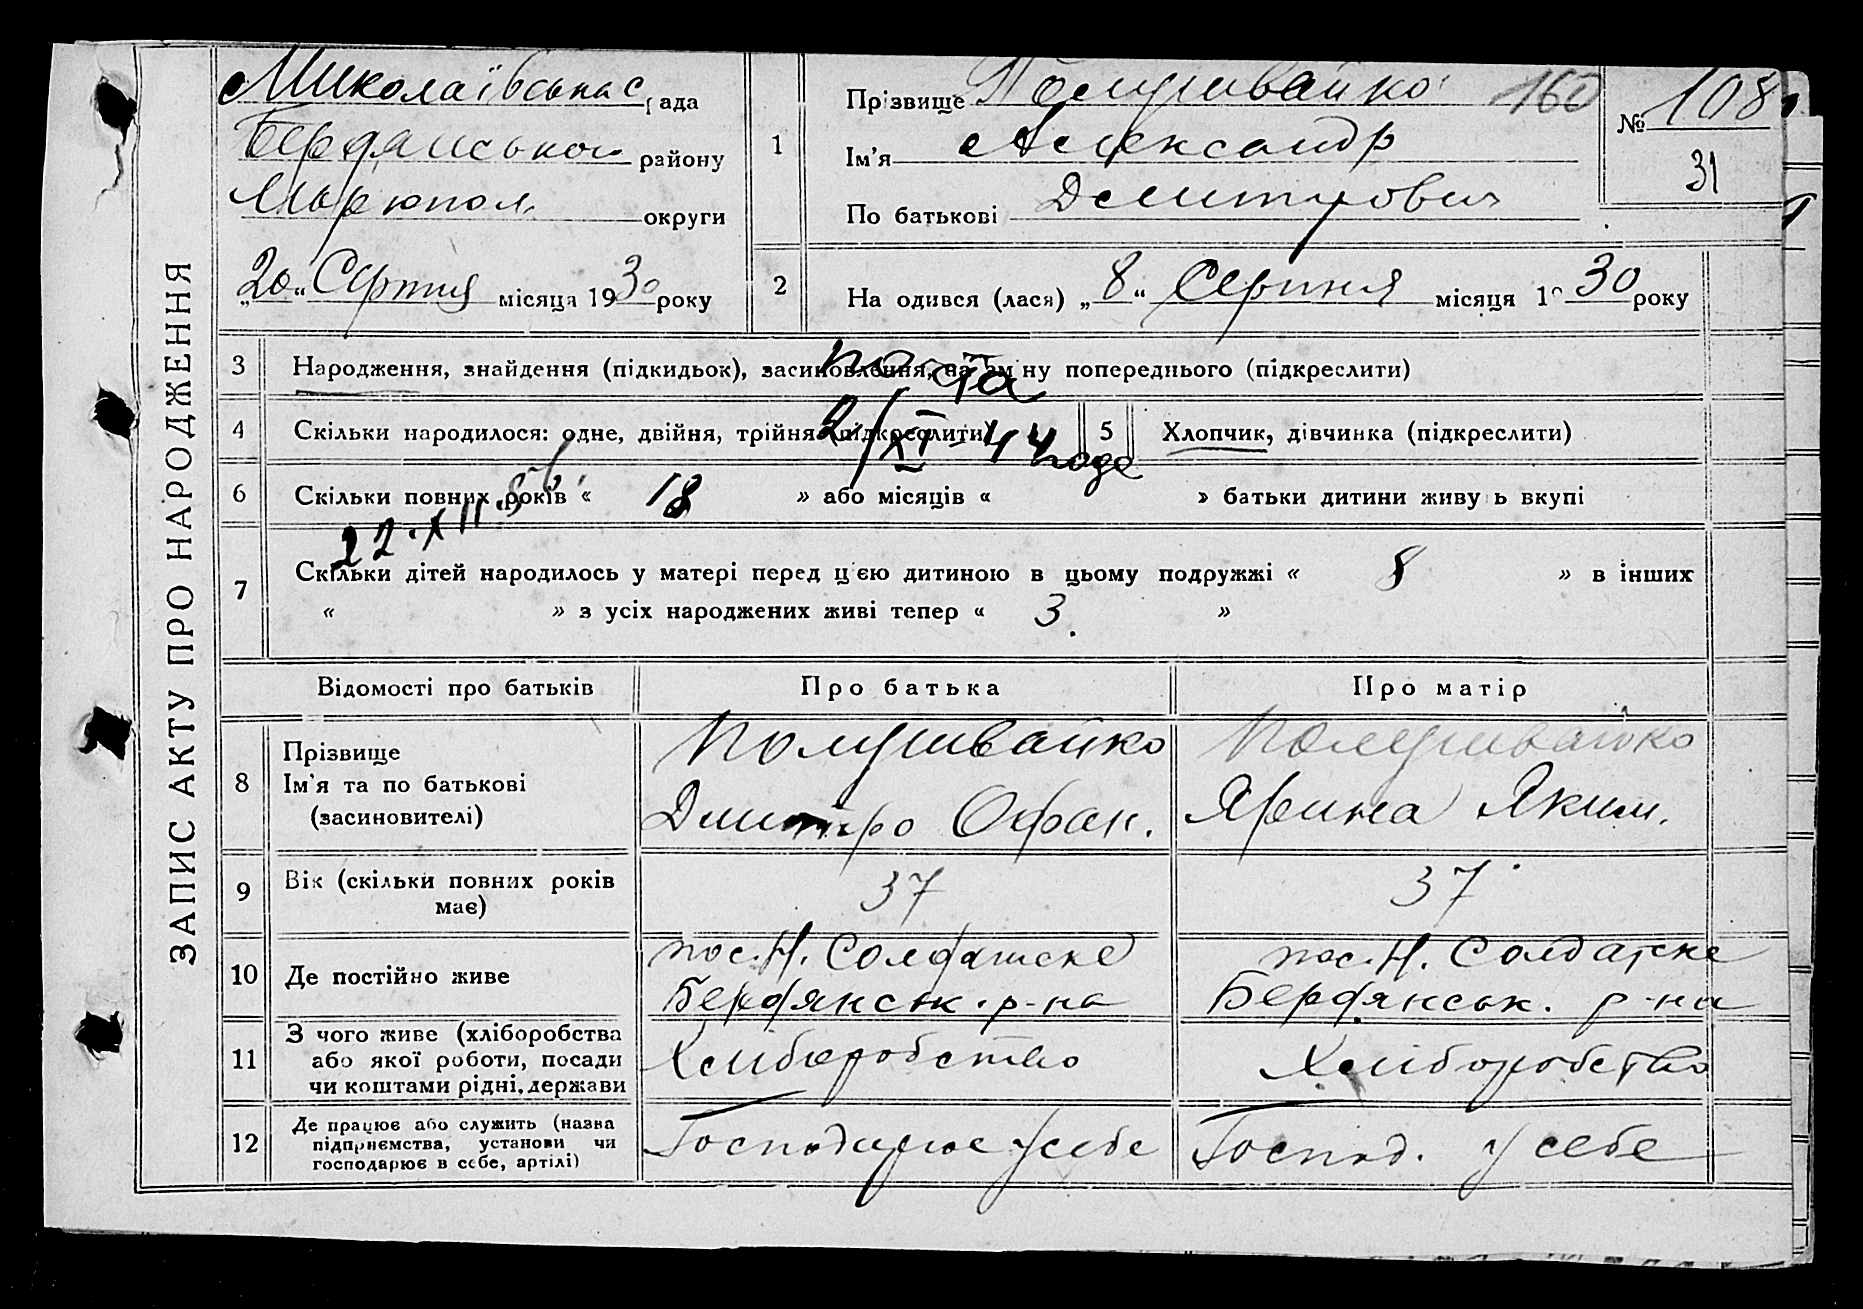 ЗАПИС АКТУ ПРО НАРОДЖЕННЯ
Миколаївська с рада
Бердянського району
Маріюпол. округи
„20“ Серпня місяця 1930 року
1
Прізвище Полушвайко
160
Ім'я Александр
По батькові Дмитрович
№ 108
31
2
На одився (лася) „8“ Серпня місяця 1930 року
3 Народження, знайдення (підкидьок), засиновлення, на зміну попереднього (підкреслити)
4 Скільки народилося: одне, двійня, трійня (підкреслити)
2/XI-44 года
5 Хлопчик, дівчинка (підкреслити)
6 Скільки повних років « 18 » або місяців « » батьки дитини живуть вкупі
22.XII.
7 Скільки дітей народилось у матері перед цією дитиною в цьому подружжі « 8 » в інших
« » з усіх народжених живі тепер « 3. »
Відомості про батьків Про батька Про матір
8 Прізвище
Ім'я та по батькові
(засиновителі)
Полушвайко
Дмитро Офан.
Полушвайко
Ярина Яким.
9 Вік (скільки повних років
має)
37
37
10 Де постійно живе
пос. Н. Солдатске
Бердянськ. р-на
пос. Н. Солдатске
Бердянськ. р-на
11 З чого живе (хліборобства
або якої роботи, посади
чи коштами рідні, держави
Хліборобство
Хліборобство
12 Де працює або служить (назва
підприємства, установи чи
господарює в себе, артілі)
Господарює у себе
Господ. у себе